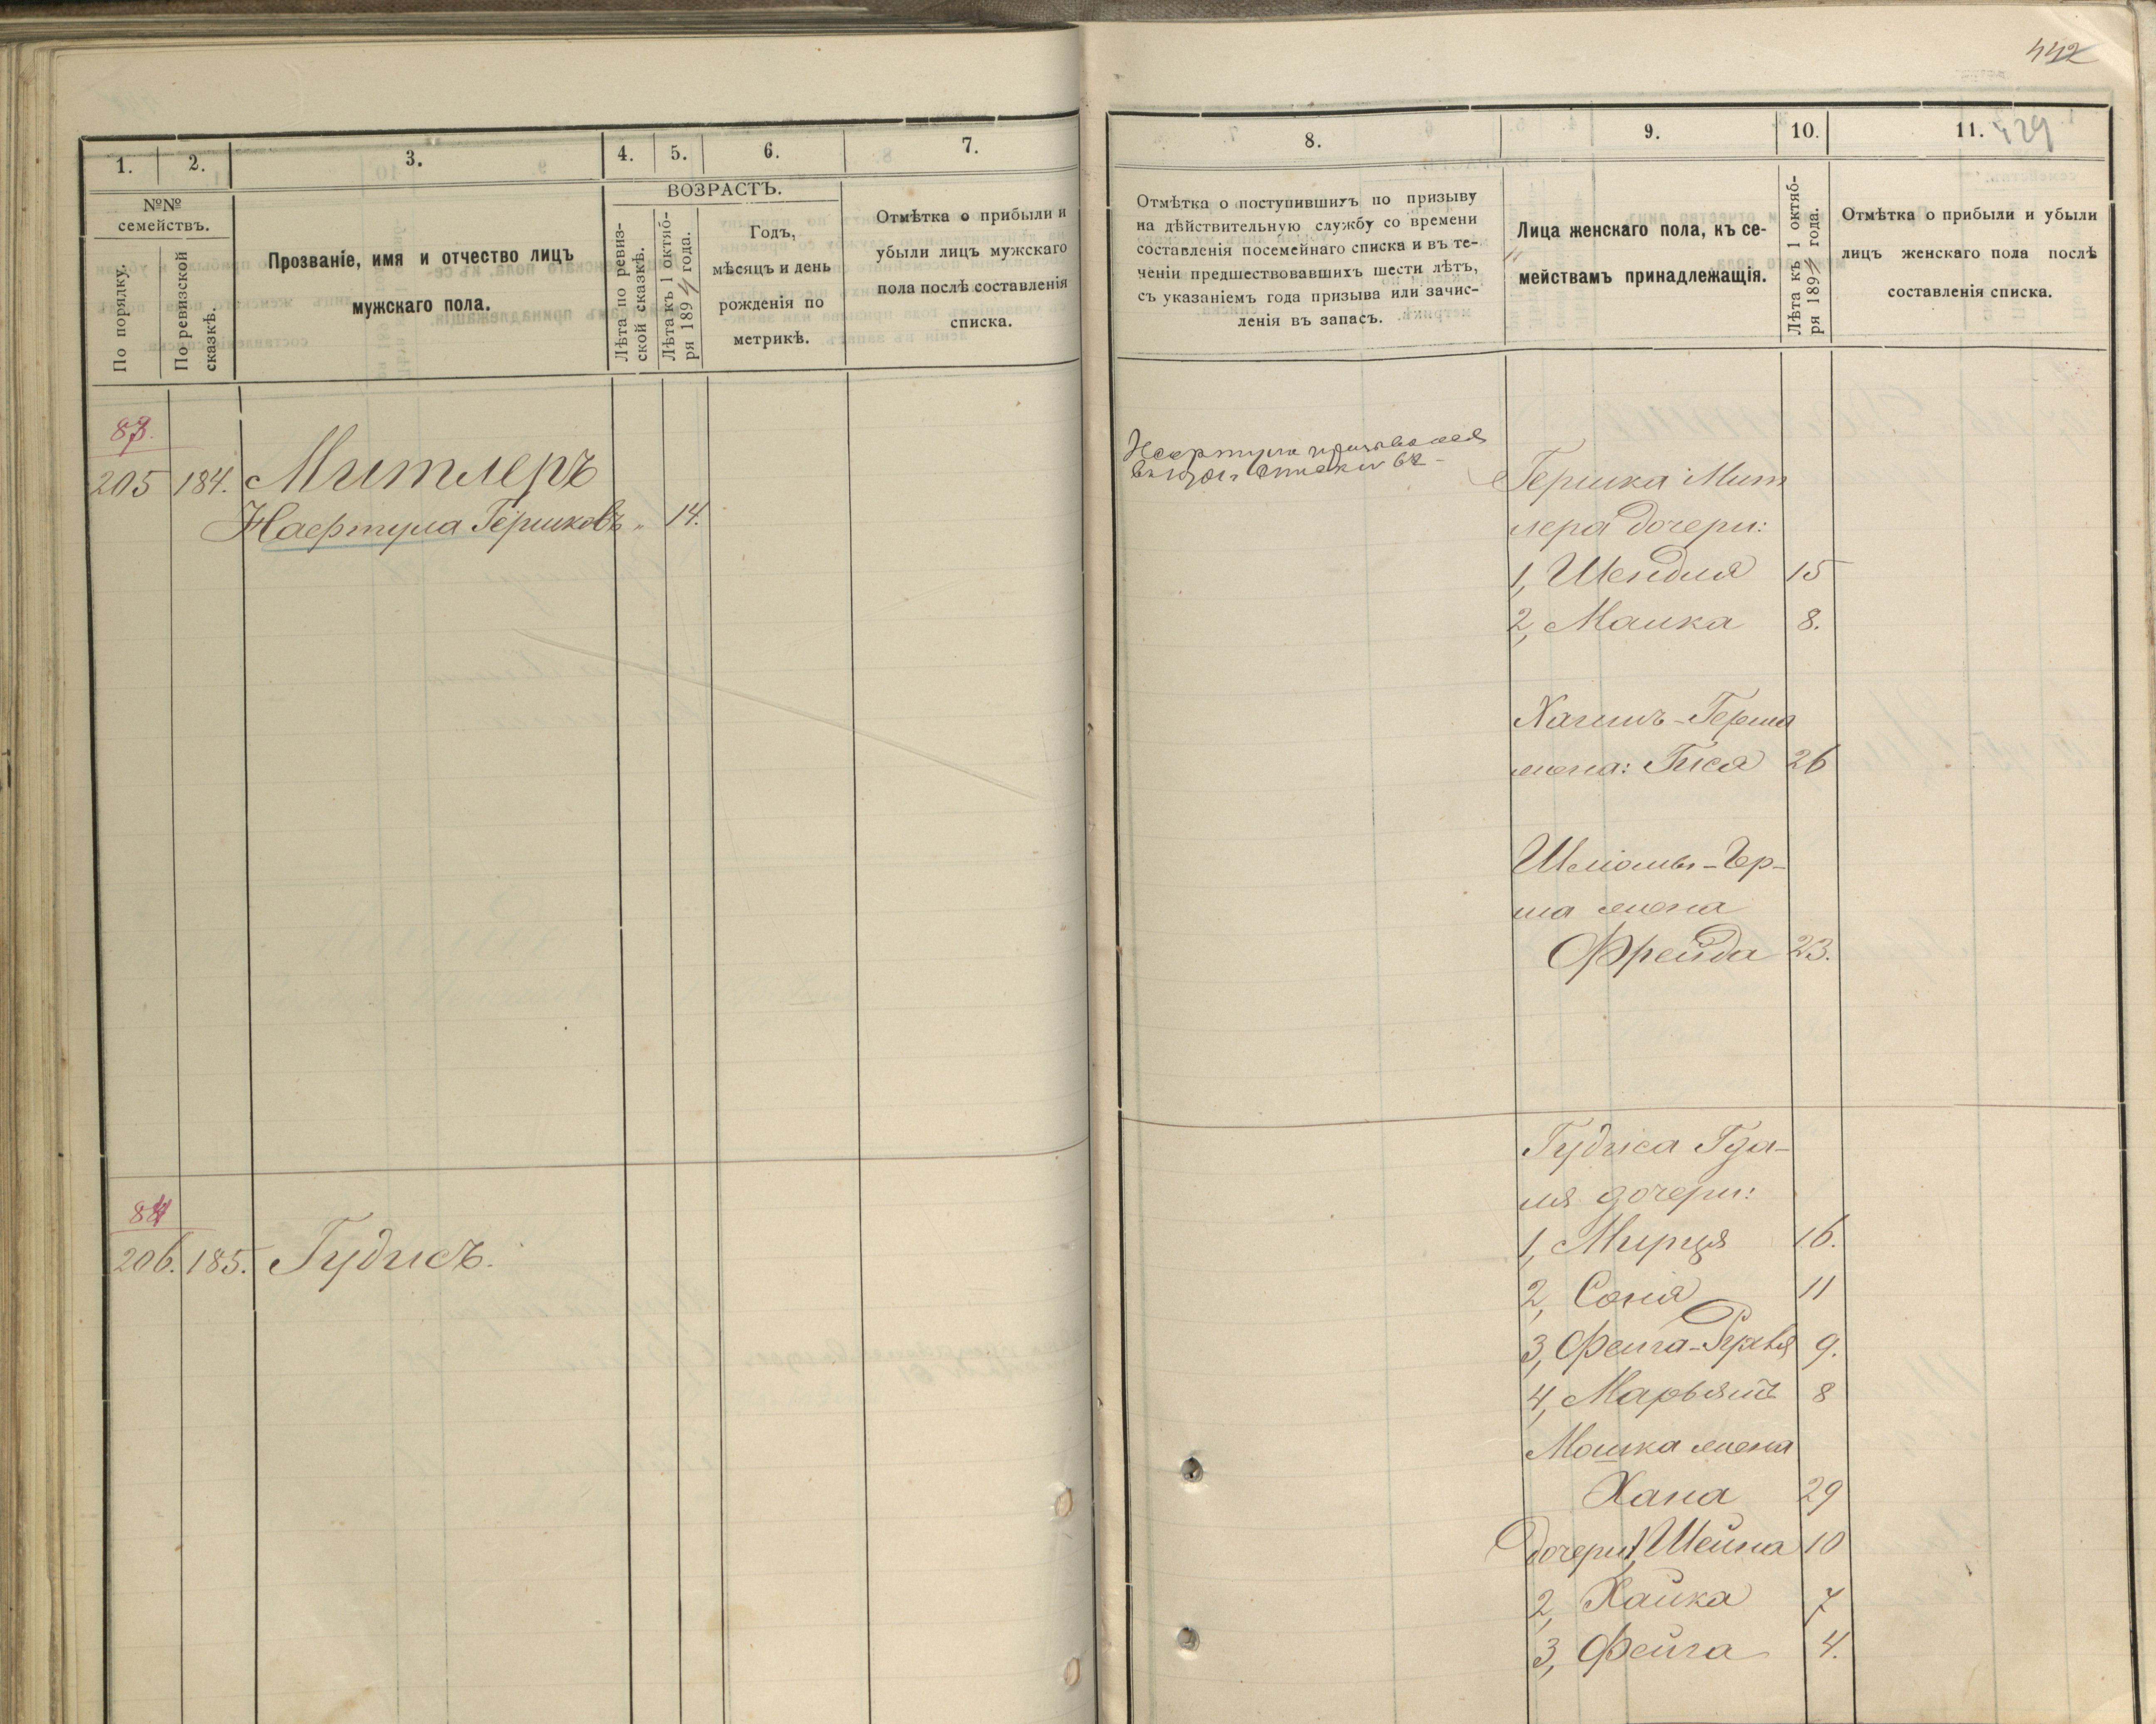 442
1.
2.
3.
4.
5.
6.
7.
№№
семействъ.
По порядку.
По ревизской
сказкѣ.
Прозваніе, имя и отчество лицъ
мужскаго пола.
ВОЗРАСТЪ.
Лѣта по ревиз-
ской сказкѣ.
Лѣта къ 1 октяб-
ря 1894 года.
Годъ,
мѣсяцъ и день
рожденія по
метрикѣ.
Отмѣтка о прибыли и
убыли лицъ мужскаго
пола послѣ составленія
списка.
83.
205 184. Митлеръ
Нафтула Гершковъ „ 14.
84
206. 185. Гудисъ.
8.
9.
10.
11. 429
Отмѣтка о поступившихъ по призыву
на дѣйствительную службу со времени
составленія посемейнаго списка и въ те-
ченіи предшествовавшихъ шести лѣтъ,
съ указаніемъ года призыва или зачис-
ленія въ запасъ.
Лица женскаго пола, къ се-
мействамъ принадлежащія.
Лѣта къ 1 октяб-
ря 1894 года.
Отмѣтка о прибыли и убыли
лицъ женскаго пола послѣ
составленія списка.
Нафтула призывался
Гершка Мит
лера дочери:
1, Шендля 15
2, Малка 8.
Хаимъ-Герша
жена: Гися 26
Шліомы-Гер-
ша жена
Фрейда 23.
Гудиса Гда-
ля дочери:
1, Мирця 16.
2, Соня 11
3, Фейга-Рухля 9.
4, Марьямъ 8
Мошка жена
Хана 29
дочери 1, Шейна 10
2, Хайка 7
3, Фейга 4.